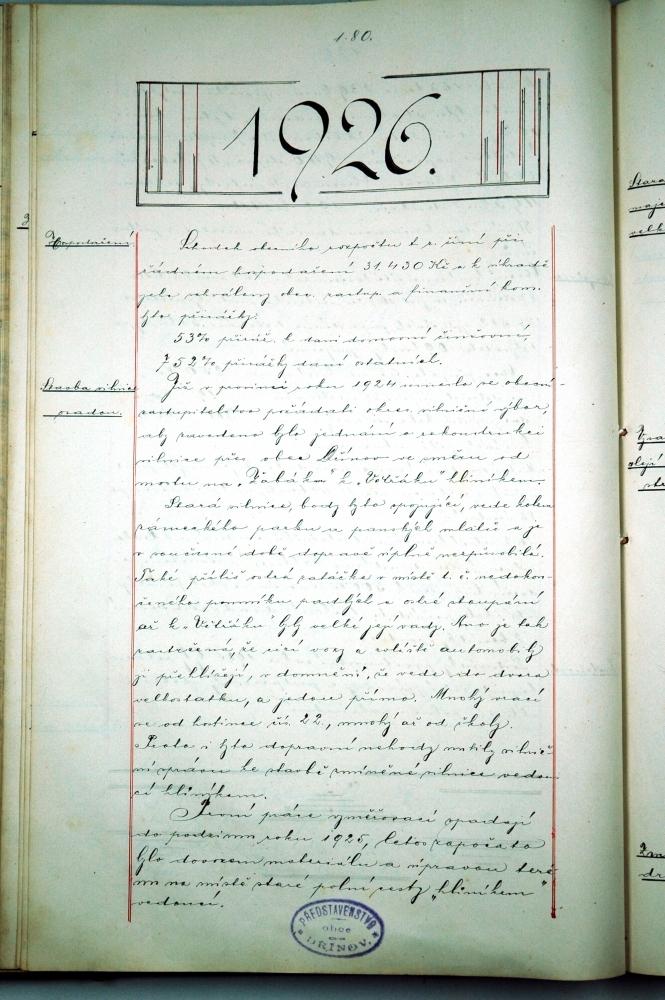 180.
1926.
Hospodaření
Schodek obecního rozpočtu t. r. činí při
řádném hospodaření 31.430 Kč a k úhradě
jeho schváleny obec. zastup. a finanční kom.
tyto přirážky:
53% přiráž. k dani domovní činžovní,
752% přirážky daní ostatních.
Stavba silnice
Již v prosinci roku 1924 usneslo se obecní
zastupitelstvo požádati okres. silniční výbor,
aby zavedeno bylo jednání o rekonstrukci
silnice přes obec Dřínov ve směru od
mostu na "Žabáku" k "Větráku" hliníkem.
Stará silnice, body tyto spojující, vede kolem
zámeckého parku a panských mlátů a je
v současné době dopravě úplně nezpůsobilá.
Také příliš ostrá zatáčka v místě t. č. nedokon-
čeného pomníku padlých a ostré stoupání
až k "Větráku" byly velké její vady. Ano je tak
zastrčená, že cizí vozy a zvláště automobily
ji přehlížejí, v domnění, že vede do dvora
velkostatku, a jedou přímo. Mnohý vrací
se od hostince čís. 22., mnohý až od školy.
Proto i tyto dopravní nehody nutily silnič-
ní správu ke stavbě zmíněné silnice vedou-
cí hliníkem.
První práce vyměřovací spadají
do podzimu roku 1925, letos započato
bylo dovozem materiálu a úpravou teré-
nu na místě staré polní cesty "hliníkem"
vedoucí.
PŘEDSTAVENSTVO
obce
DŘÍNOV.